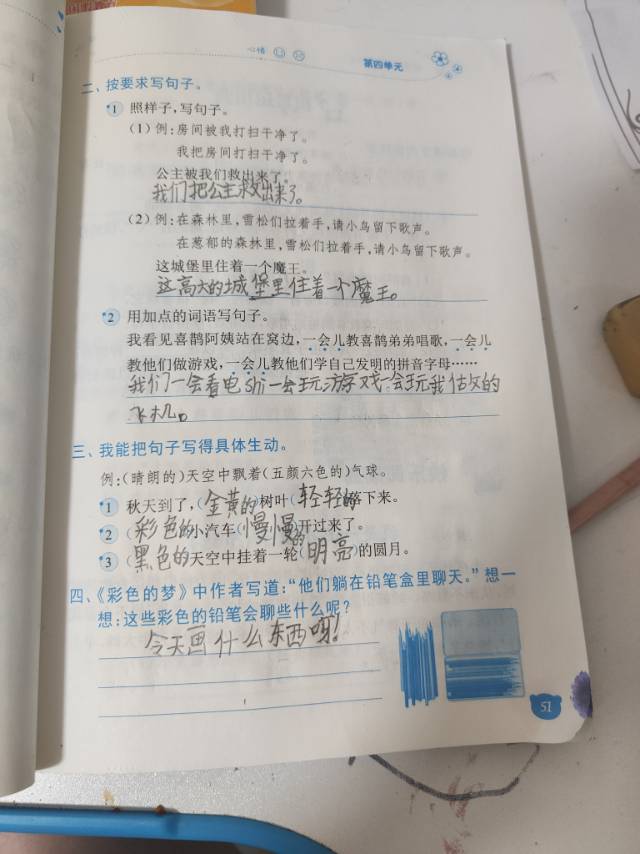 心情
第四单元
二、按要求写句子。
1 照样子,写句子。
(1)例:房间被我打扫干净了。
我把房间打扫干净了。
公主被我们救出来了。
我们把公主救出来了。
(2)例:在森林里,雪松们拉着手,请小鸟留下歌声。
在葱郁的森林里,雪松们拉着手,请小鸟留下歌声。
这城堡里住着一个魔王。
这高大的城堡里住着一个魔王。
2 用加点的词语写句子。
我看见喜鹊阿姨站在窝边,一会儿教喜鹊弟弟唱歌,一会儿
教他们做游戏,一会儿教他们学自己发明的拼音字母……
我们一会看电shi一会玩游戏一会玩我估文的
飞机。
三、我能把句子写得具体生动。
例:(晴朗的)天空中飘着(五颜六色的)气球。
1 秋天到了,(金黄的)树叶(轻轻的)落下来。
2 (彩色的)小汽车(慢慢的)开过来了。
3 (黑色的)天空中挂着一轮(明亮)的圆月。
四、《彩色的梦》中作者写道:“他们躺在铅笔盒里聊天。”想一
想:这些彩色的铅笔会聊些什么呢?
今天画什么东西呀!
51